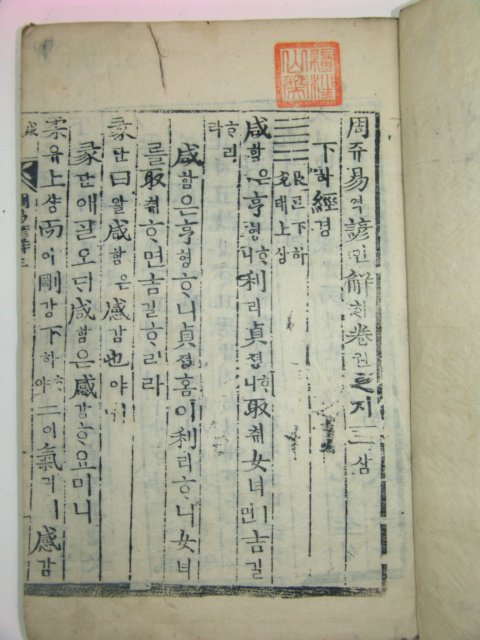 周쥬易역諺언解ᄒᆡ卷권之지三삼
下하經경
䷞ 艮간下하
兌태上샹
咸함은亨형ᄒᆞ니利리貞졍ᄒᆞ니取췌女녀ㅣ면吉길
ᄒᆞ리라
咸함은亨형ᄒᆞ니貞졍홈이利리ᄒᆞ니女녀
를取췌ᄒᆞ면吉길ᄒᆞ리라
彖단曰왈咸함은感감也야ㅣ니
彖단애ᄀᆞᆯ오ᄃᆡ咸함은感감ᄒᆞ요미니
柔유上샹而이剛강下하ᄒᆞ야二이氣긔ㅣ感감
咸